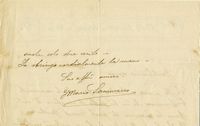 anche solo due righe –
Le stringo cordialmente la mano –
Suo aff. amico
G Mario Sammarco